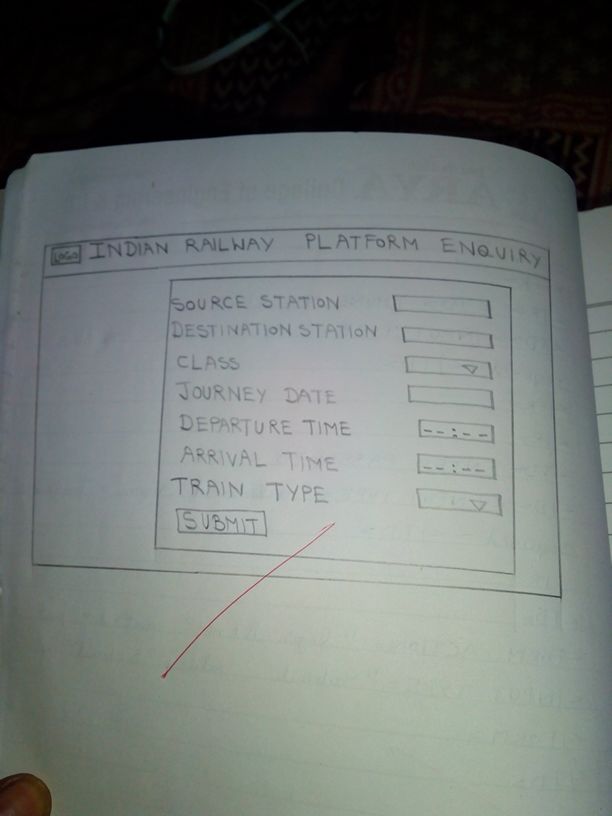 LOGO INDIAN RAILWAY PLATFORM ENQUIRY
SOURCE STATION
DESTINATION STATION
CLASS
JOURNEY DATE
DEPARTURE TIME --:--
ARRIVAL TIME --:--
TRAIN TYPE
SUBMIT